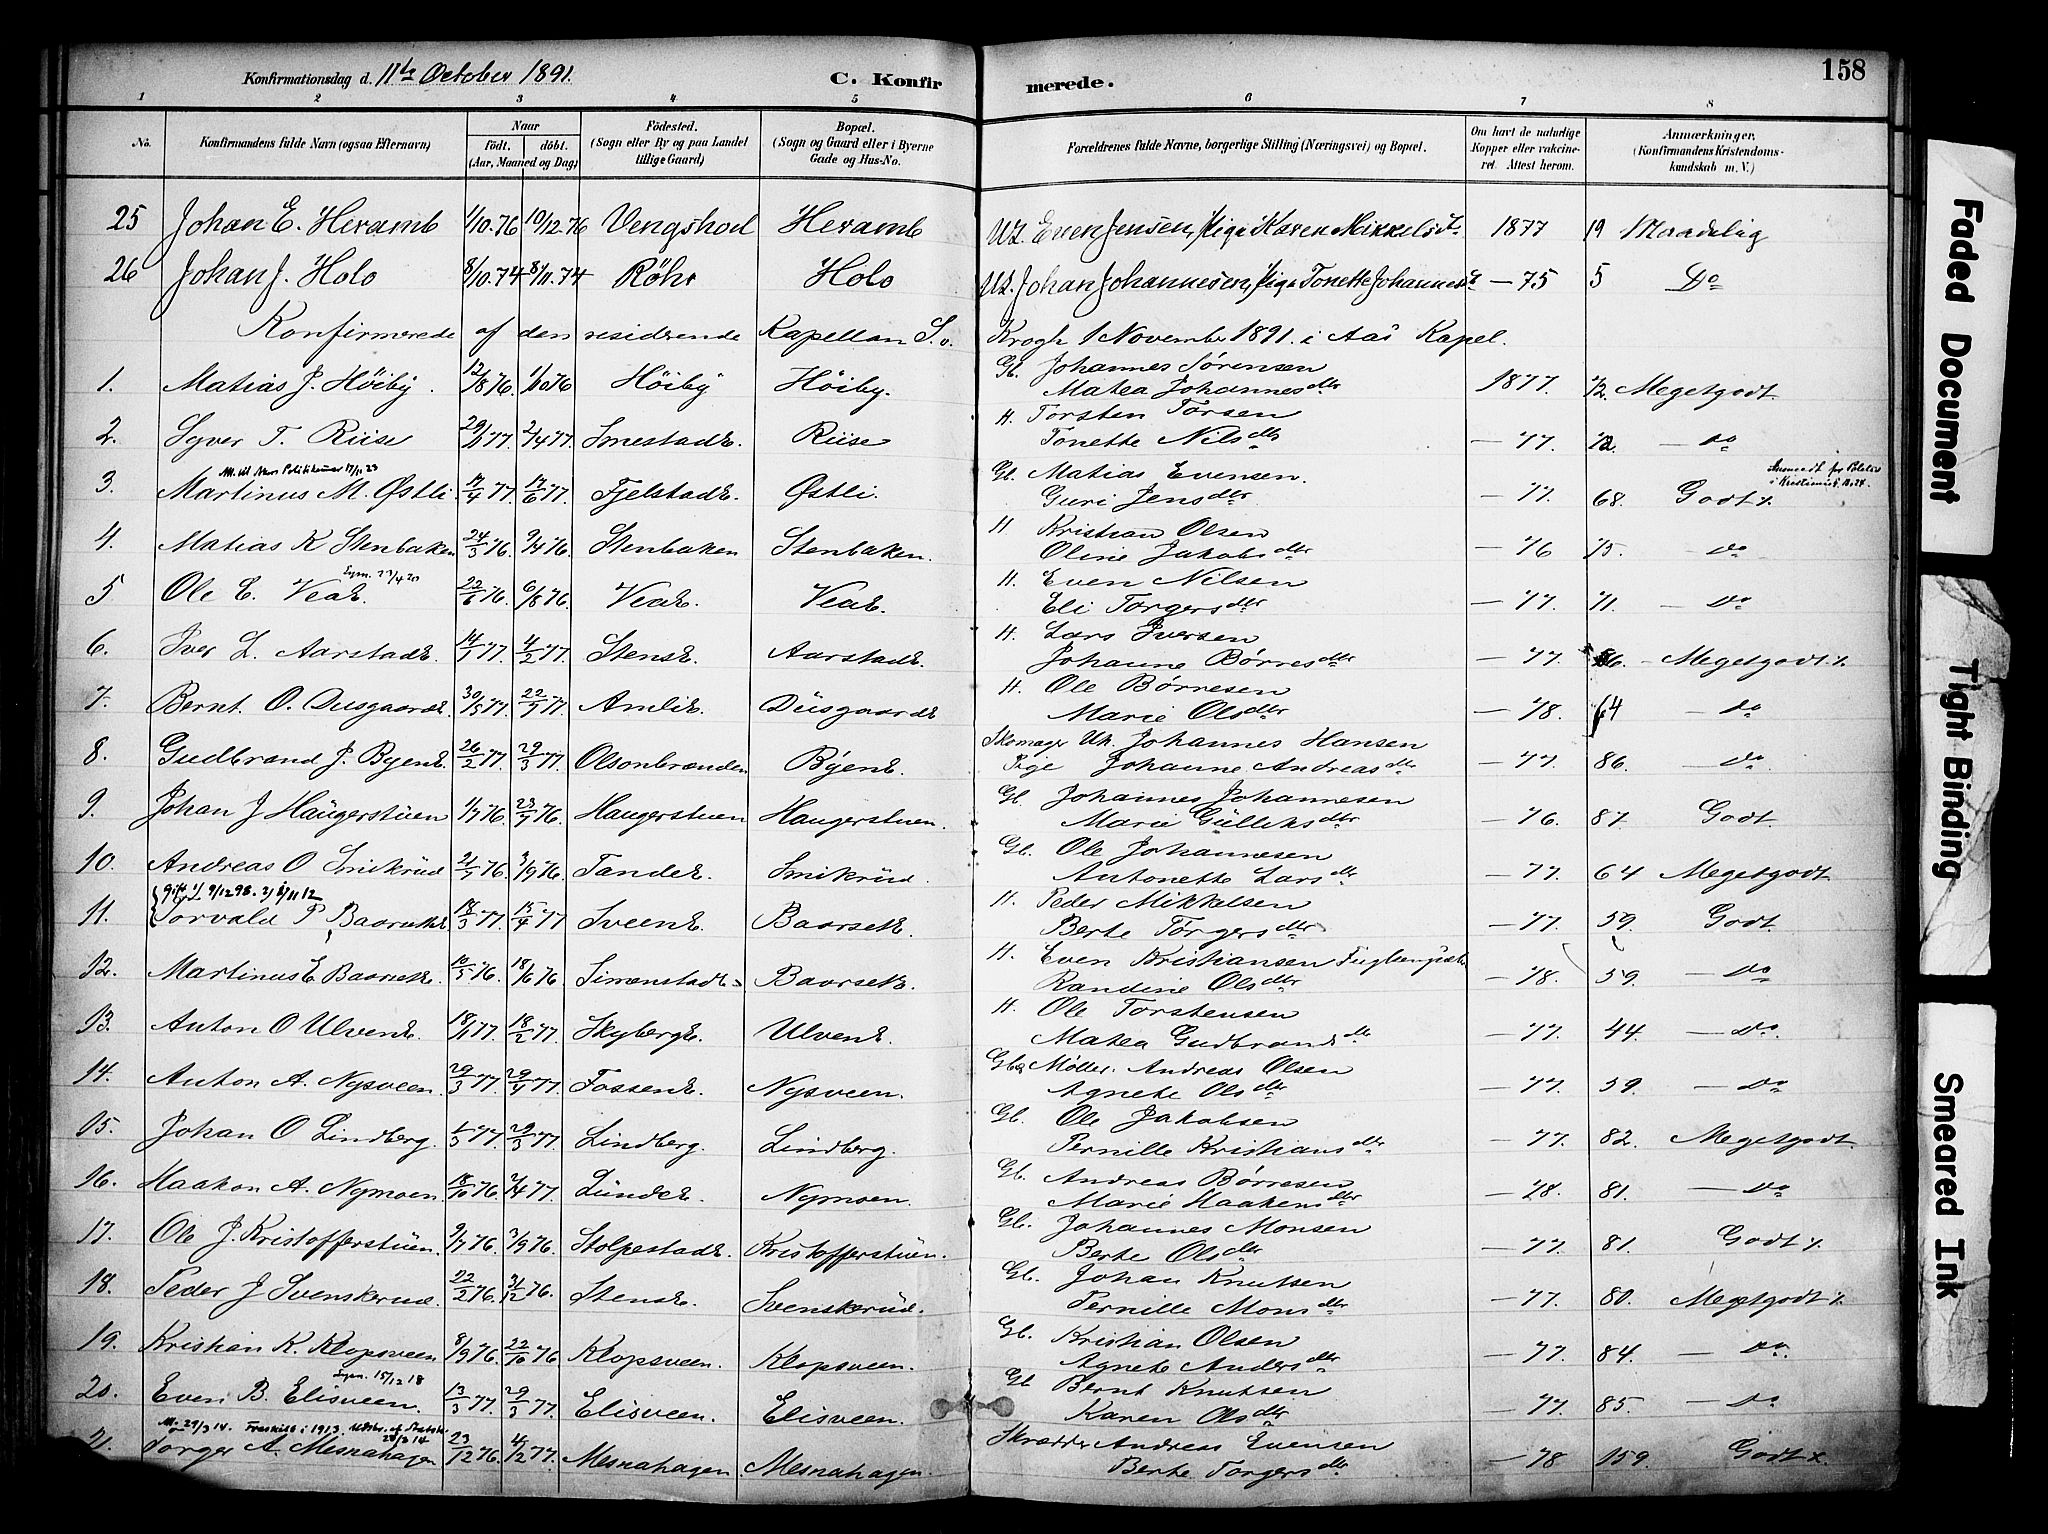 Konfirmationsdag d. 11te October 1891. C. Konfirmerede. 158
1 2 3 4 5 6 7 8
No. Konfirmandens fulde Navn (ogsaa Efternavn) Naar födt. döbt. (Aar, Maaned og Dag) Födested. (Sogn eller By og paa Landet tillige Gaard) Bopæl. (Sogn og Gaard eller i Byerne Gade og Hus-No. Forældrenes fulde Navne, borgerlige Stilling (Næringsvei) og Bopæl. Om havt de naturlige Kopper eller vakcineret. Attest herom. Anmærkninger. (Konfirmandens Kristendomskundskab m. V.)
25 Johan E. Heramb 1/10.76 10/12.76 Vengshol Heramb Even Jensen, Pige Karen Mikkelsdt 1877 19 Maadelig
26 Johan J. Holo 8/10.74 8/11.74 Röhr Holo Johan Johannesen, Pige Tonette Johannesdt — 75 5 Do
Konfirmerede af den residerende Kapellan S. v. Krogh 1 November 1891. i Aas Kapel.
1. Matias J. Höiby. 12/8 76 1/10 76 Höiby Höiby. Gb. Johannes Sörensen
Matea Johannesdtr 1877. 72. Megetgodt.
2. Syver T. Riise 2/4 77. Smestad. Riise H. Torsten Torsen
Tonette Nilsdtr — 77. — do
M. til Nors Politikamer 17/11 23
3. Martinus M. Østli 17/4 77. 17/6 77. Fjelstad. Østli. Gb. Matias Evensen.
Guri Jensdtr — 77. 68. Godt
4. Matias K Stenbaken 24/3 76. 9/4 76. Stenbaken Stenbaken. H Kristian Olsen
Oline Jakobsdtr — 76 75. — Do
5 Ole E. Vea. 22/6 76. 6/8 76. Vea. Vea. H. Even Nilsen
Eli Torgersdtr — 77. 71. — Do
6. Iver L. Aarstad. 14/1 77. 4/2 77. Stens. Aarstad. H. Lars Iversen
Johanne Børresdtr — 77. 66. — Megetgodt.
7. Bernt O. Dusgaard. 30/5 77. 22/7 77. Amli. Düsgaard H. Ole Børresen
Marie Olsdtr — 78. 64 — do
8. Gudbrand J. Byen. 26/2 77. 29/3 77. Olsonbrænden Byen. Skomager Uk. Johannes Hansen
Pige Johanne Andreasdtr — 77. 86. — do
9. Johan J Haugerstuen 1/7 76. 23/7 76. Haugerstuen Haugerstuen. Gb. Johannes Johannesen
Marie Gulliksdtr — 76. 87. Godt.
10. Andreas O Smikrud 21/7 76. 3/9 76. Tande. Smikrud. Gb. Ole Johannesen
Antonette Larsdtr — 77. 64 Megetgodt
gift 1/ 9/12 98. 2/ 8/11 12
11. Torvald P Baarset 18/3 77. 15/4 77. Sveen. Baarset. H. Peder Mikkelsen
Berte Torgersdtr — 77. 59. Godt.
12. Martinus E Baarset. 10/5 76. 18/6 76. Simenstad. Baarset. H. Even Kristiansen
Randine Olsdtr — 78. 59. — Do
13. Anton O Ulven. 18/1 77. 18/2 77. Skyberg. Ulven. H Ole Torstensen
Matea Gudbrandsdtr — 77. 44. — Do
14. Anton A. Nysveen. 29/3 77. 29/4 77. Fossen. Nysveen. Gb. Møller. Andreas Olsen
Agnete Olsdtr — 77. 59. — Do
15. Johan O Lindberg. 29/3 77. Lindberg. Lindberg. Gb. Ole Jakobsen
Pernille Kristiansdtr — 77. 82. Megetgodt.
16. Haakon A. Nymoen. 18/10 76. 2/4 77. Lunde. Nymoen. Gb. Andreas Børresen
Marie Haakensdtr — 78. 81. — Do
17. Ole J. Kristofferstuen. 9/7 76. 3/9 76. Stolpestad. Kristofferstuen. Gb. Johannes Monsen
Berte Olsdtr — 77. 81. Godt
18. Peder J Svenskerud. 22/2 76. 31/12 76. Stens. Svenskerud. Gb. Johan Knutsen
Pernille Monsdtr — 77. 80. Megetgodt
19. Kristian K. Klopsveen 8/9 76. 22/10 76 Klopsveen. Klopsveen. Gb. Kristian Olsen
Agnete Andersdtr — 77. 84. — Do
20. Even B. Elisveen. 13/3 77. 29/3 77. Elisveen. Elisveen. Gb Bernt Knutsen
Karen Olsdtr — 77. 85. — Do
21. Torger A. Mesnahagen 23/12 76. 4/2 77. Mesnahagen. Mesnahagen. Skrædder Andreas Evensen
Berte Torgersdtr — 78 159. Godt
Faded Document
Tight Binding
Smeared Ink